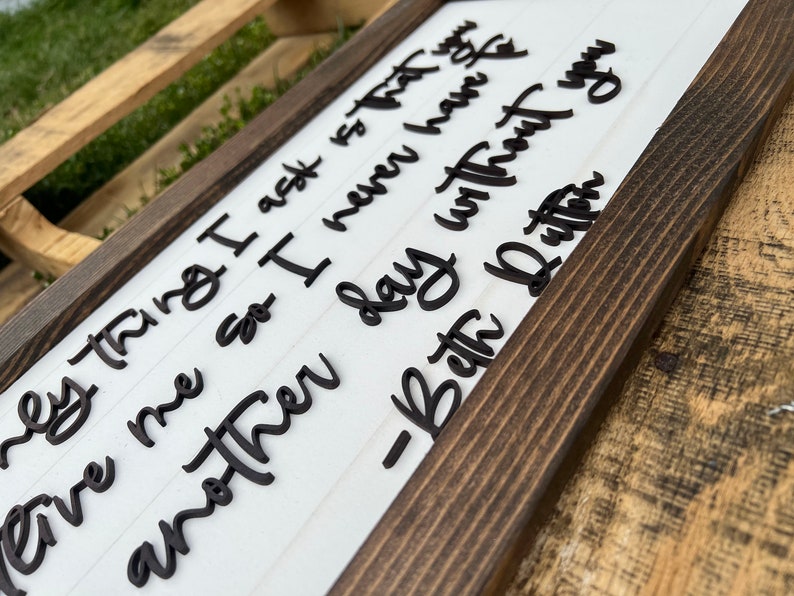 nly thing I ask is that you
live me so I never have to
another day without you
-Beth Dutton